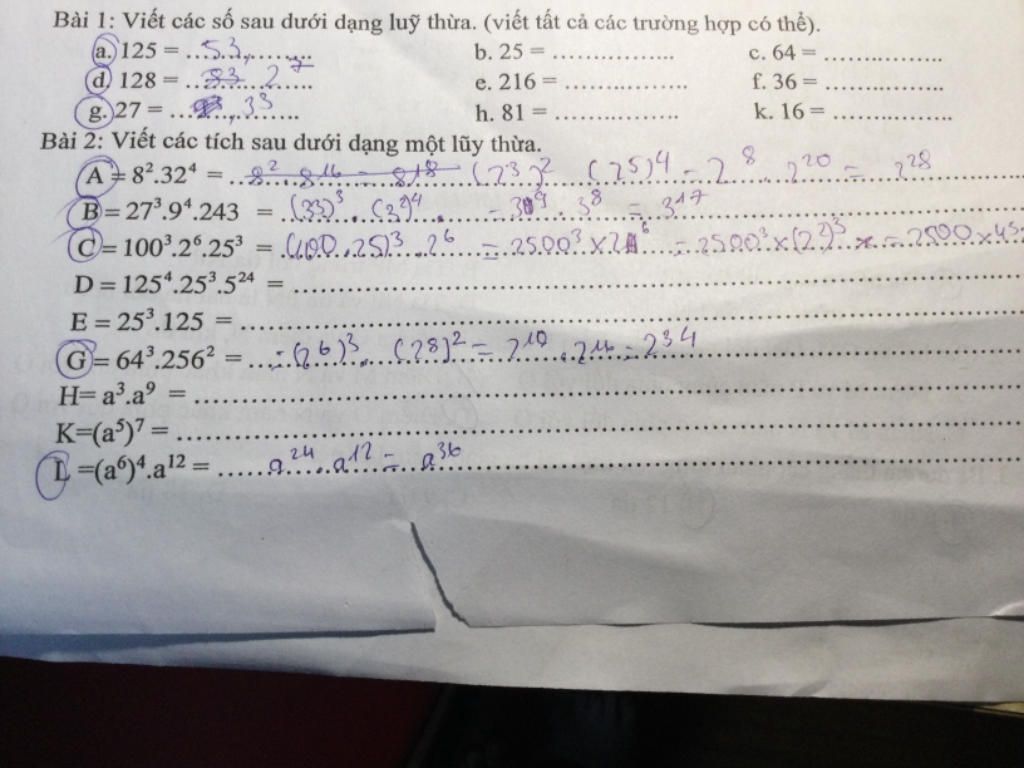 Bài 1: Viết các số sau dưới dạng luỹ thừa. (viết tất cả các trường hợp có thể).
a. 125 = ...5³,......... b. 25 = .................. c. 64 = ..................
d. 128 = ...8³ 2⁷..... e. 216 = .................. f. 36 = ..................
g. 27 = ......, 3³....... h. 81 = .................. k. 16 = ..................
Bài 2: Viết các tích sau dưới dạng một lũy thừa.
A = 8².32⁴ = ...8² . 8¹⁶ = 8¹⁸ (2³)² (25)⁴ = 2⁸ . 2²⁰ = 2²⁸
B = 27³.9⁴.243 = (33)³ . (3²)⁴ . = 3⁹ . 3⁸ = 3¹⁷
C = 100³.2⁶.25³ = (100 . 25)³ . 2⁶ = 2500³ × 2⁶ = 2500³ × (2²)³ = 2500 × 45
D = 125⁴.25³.5²⁴ = ..................
E = 25³.125 = ..................
G = 64³.256² = ...= (26)³ . (28)² = 2¹⁰ . 2¹⁶ = 2³⁴
H= a³.a⁹ = ..................
K=(a⁵)⁷ = ..................
L =(a⁶)⁴.a¹² = ......a²⁴ . a¹² = a³⁶